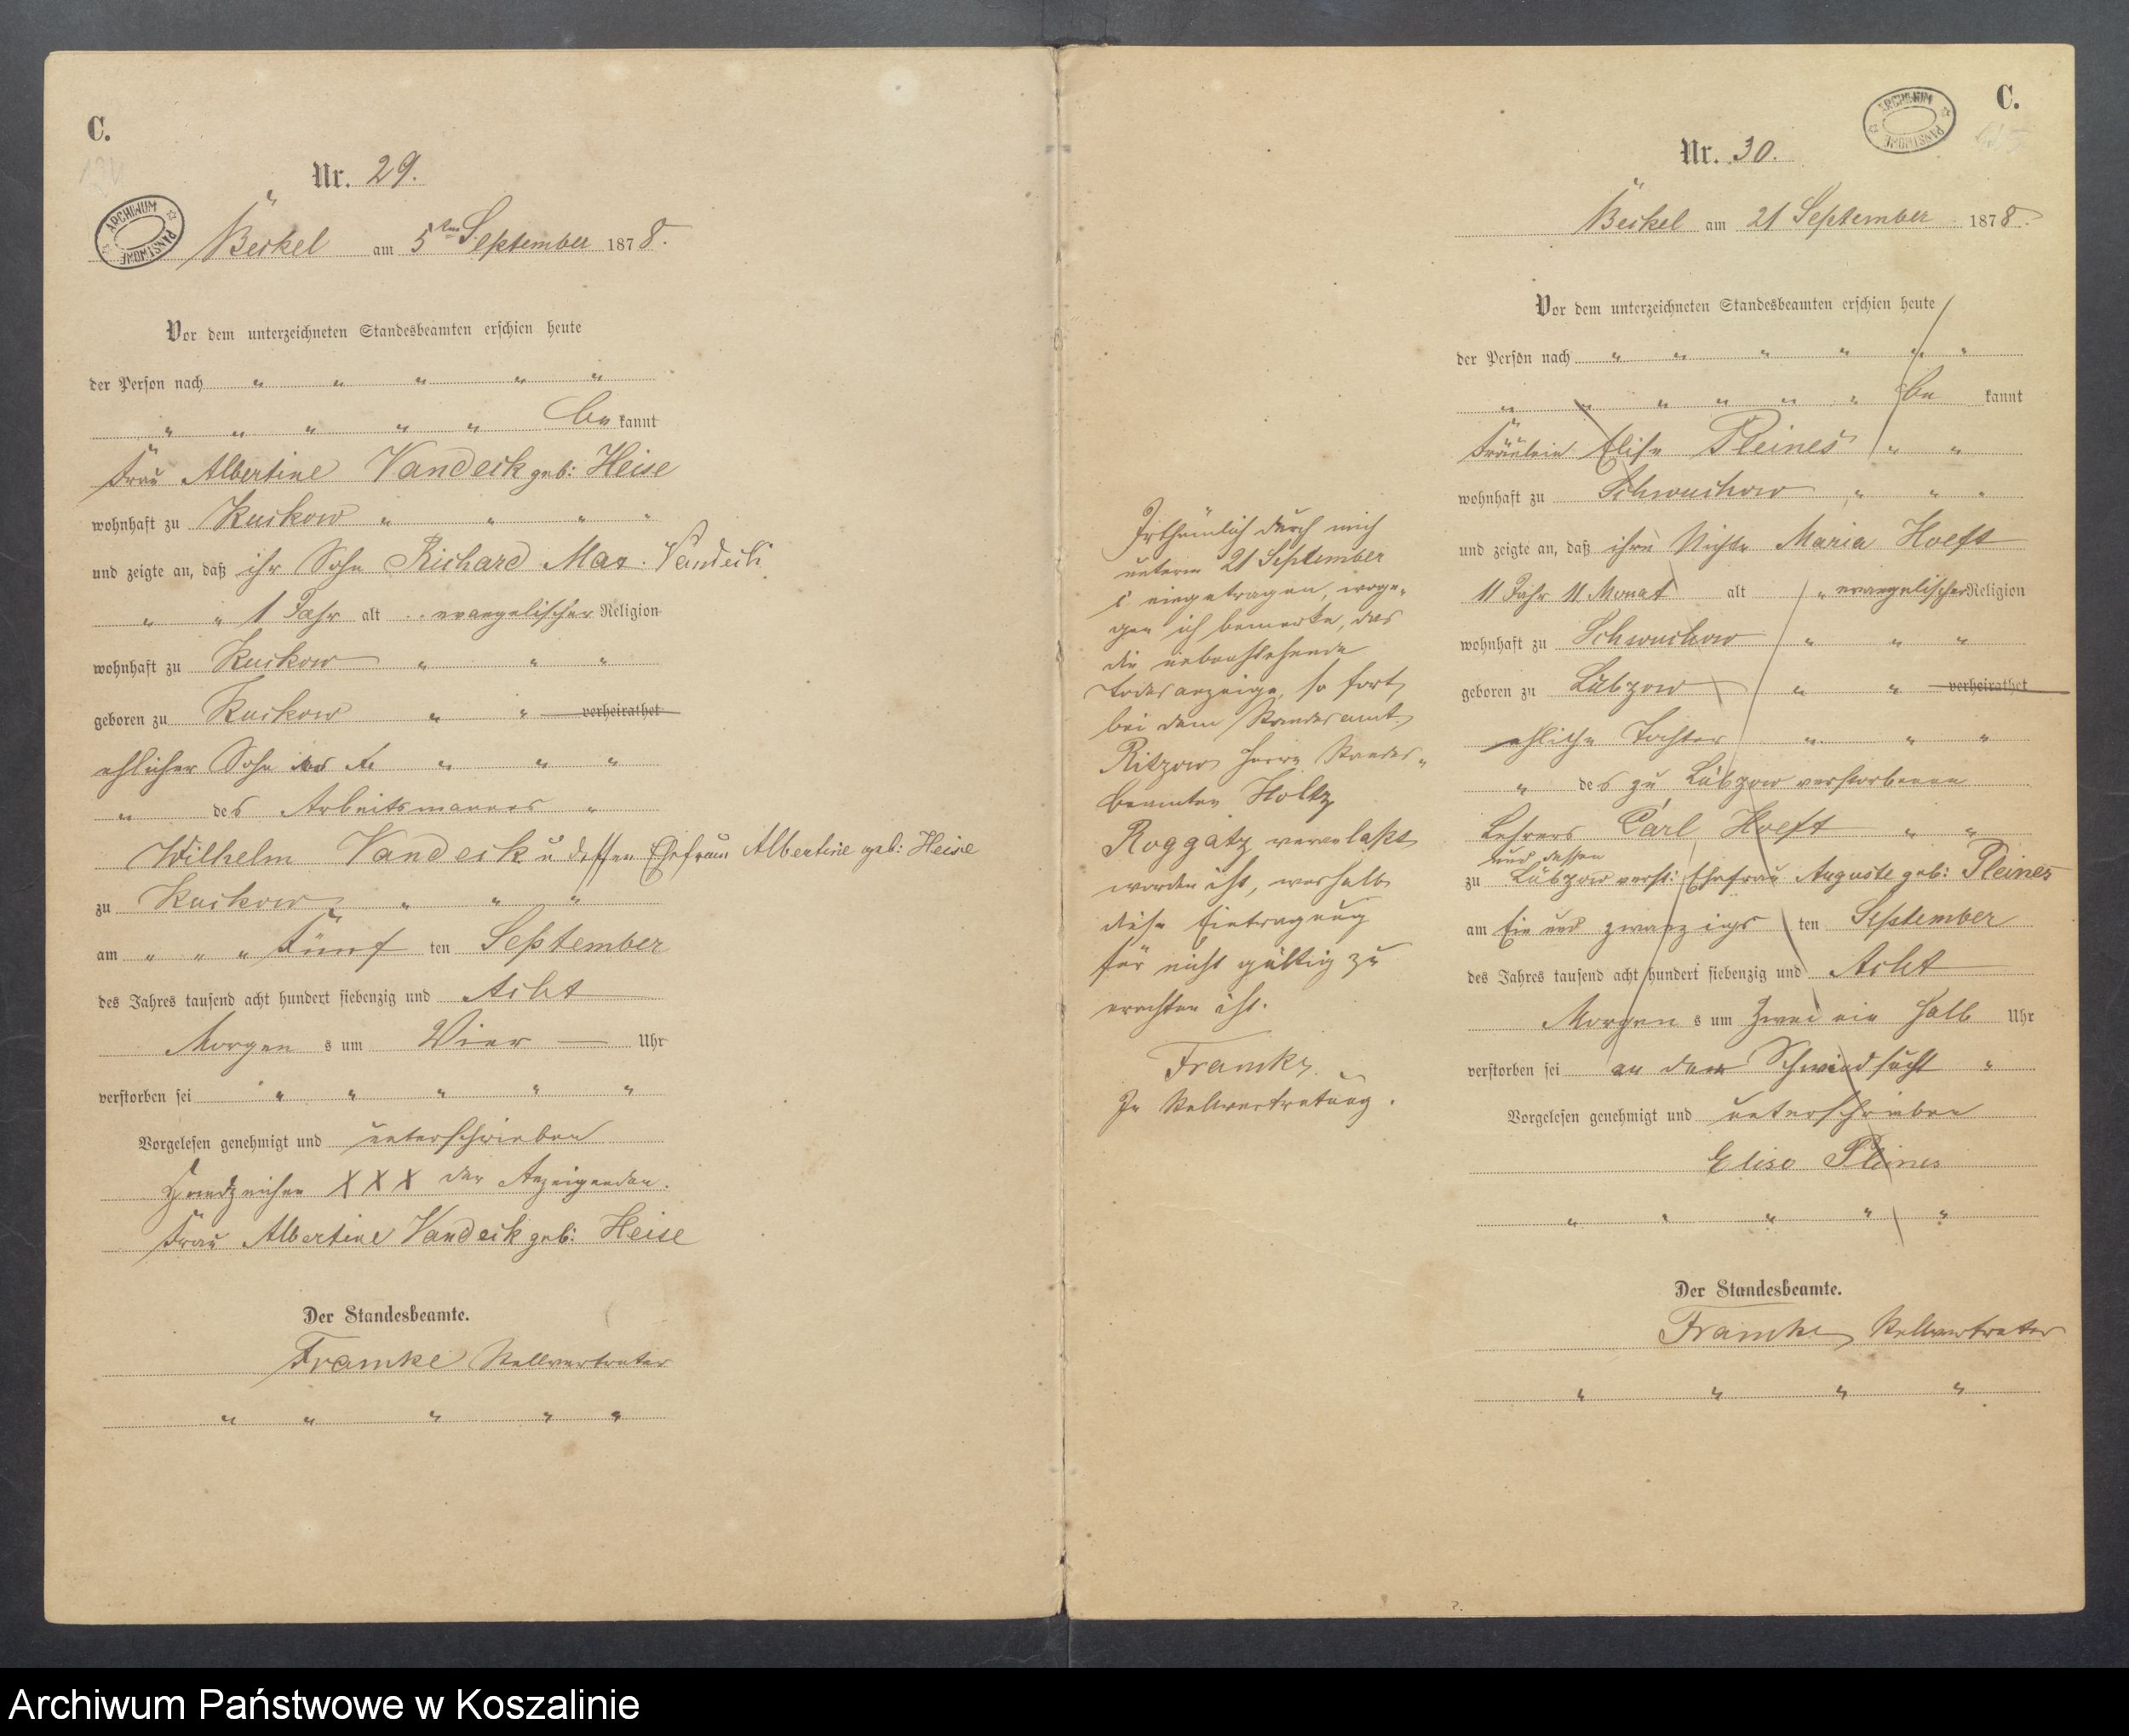 C.
Nr. 29.
ARCHIWUM PAŃSTWOWE
Beckel am 5ten September 1878.
Vor dem unterzeichneten Standesbeamten erschien heute
der Person nach " " " " "
" " " " " be kannt
Frau Albertine Vandeick geb: Heise
wohnhaft zu Kuckow " " " "
und zeigte an, daß ihr Sohn Richard Max Vandeick
" " 1 Jahr alt evangelischer Religion
wohnhaft zu Kuckow " " "
geboren zu Kuckow " " verheirathet
ehlicher Sohn " " "
" des Arbeitsmannes "
Wilhelm Vandeick u dessen Ehefrau Albertine geb: Heise
zu Kuckow " " "
am " " " Fünf ten September
des Jahres tausend acht hundert siebenzig und Acht
Morgen s um Vier — Uhr
verstorben sei " " " " "
Vorgelesen genehmigt und unterschrieben
Handzeichen XXX der Anzeigenden.
Frau Albertine Vandeick geb: Heise
Der Standesbeamte.
Framke Stellvertreter
" " " " "
C.
ARCHIWUM PAŃSTWOWE
Nr. 30.
Beckel am 21 September 1878.
Vor dem unterzeichneten Standesbeamten erschien heute
der Person nach " " " " " "
" " " " " " be kannt
Fräulein Elise Pleines " "
wohnhaft zu Schwuchow " " "
und zeigte an, daß ihre Nichte Maria Hoeft
11 Jahr 11 Monat alt " evangelischer Religion
wohnhaft zu Schwuchow " " "
geboren zu Lübzow " " verheirathet
ehliche Tochter " " "
" des zu Lübzow verstorbenen
Lehrers Carl Hoeft " "
und dessen
zu Lübzow verst: Ehefrau Auguste geb: Pleines
am Ein und zwanzigs ten September
des Jahres tausend acht hundert siebenzig und Acht
Morgen s um Zwei ein halb Uhr
verstorben sei an der Schwindsucht "
Vorgelesen genehmigt und unterschrieben
Elise Pleines
" " " " "
Der Standesbeamte.
Framke Stellvertreter
" " " "
Irthümlich durch mich
unterm 21 September
eingetragen, woge-
gen ich bemerke, das
die nebenstehende
Todesanzeige, so fort
bei dem Standesamt
Ritzow Herrn Standes-
beamten Holtz
Roggatz veranlaßt
worden ist, weshalb
diese Eintragung
für nicht gültig zu
erachten ist.
Framke.
In Stellvertretung.
Archiwum Państwowe w Koszalinie